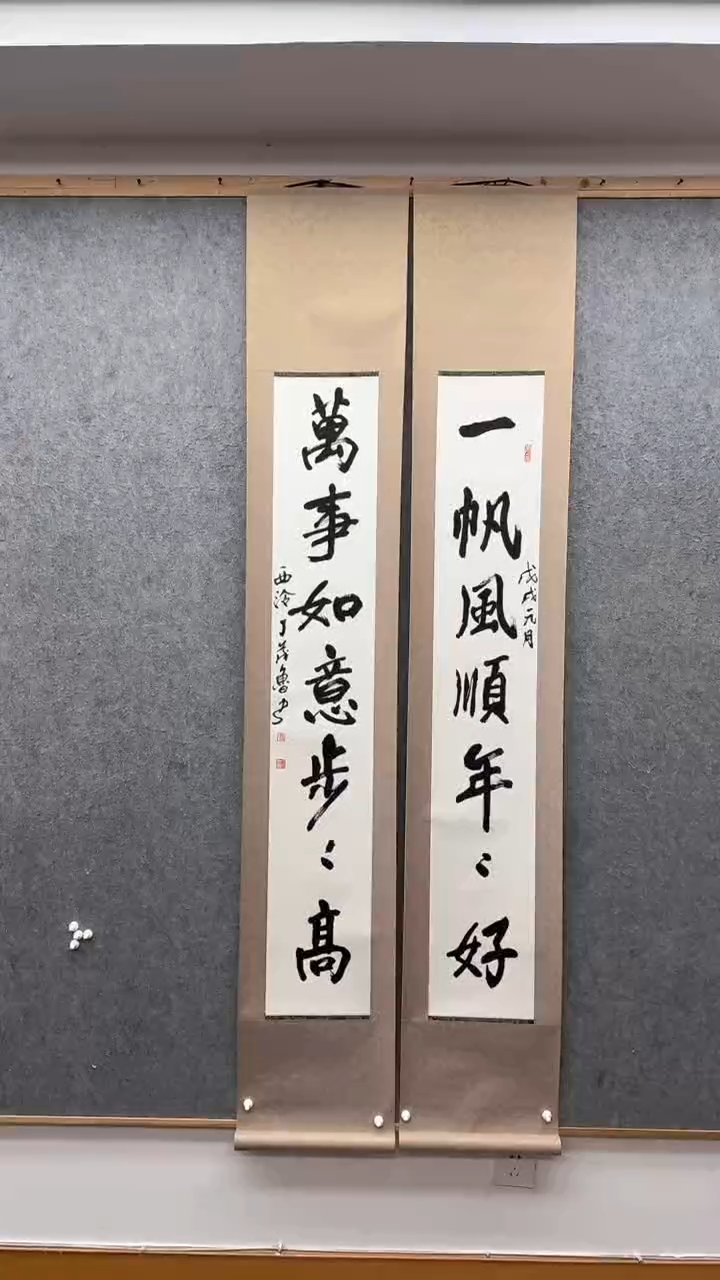 一帆風順年〻好
戊戌元月
萬事如意步〻高
西泠丁茂魯書